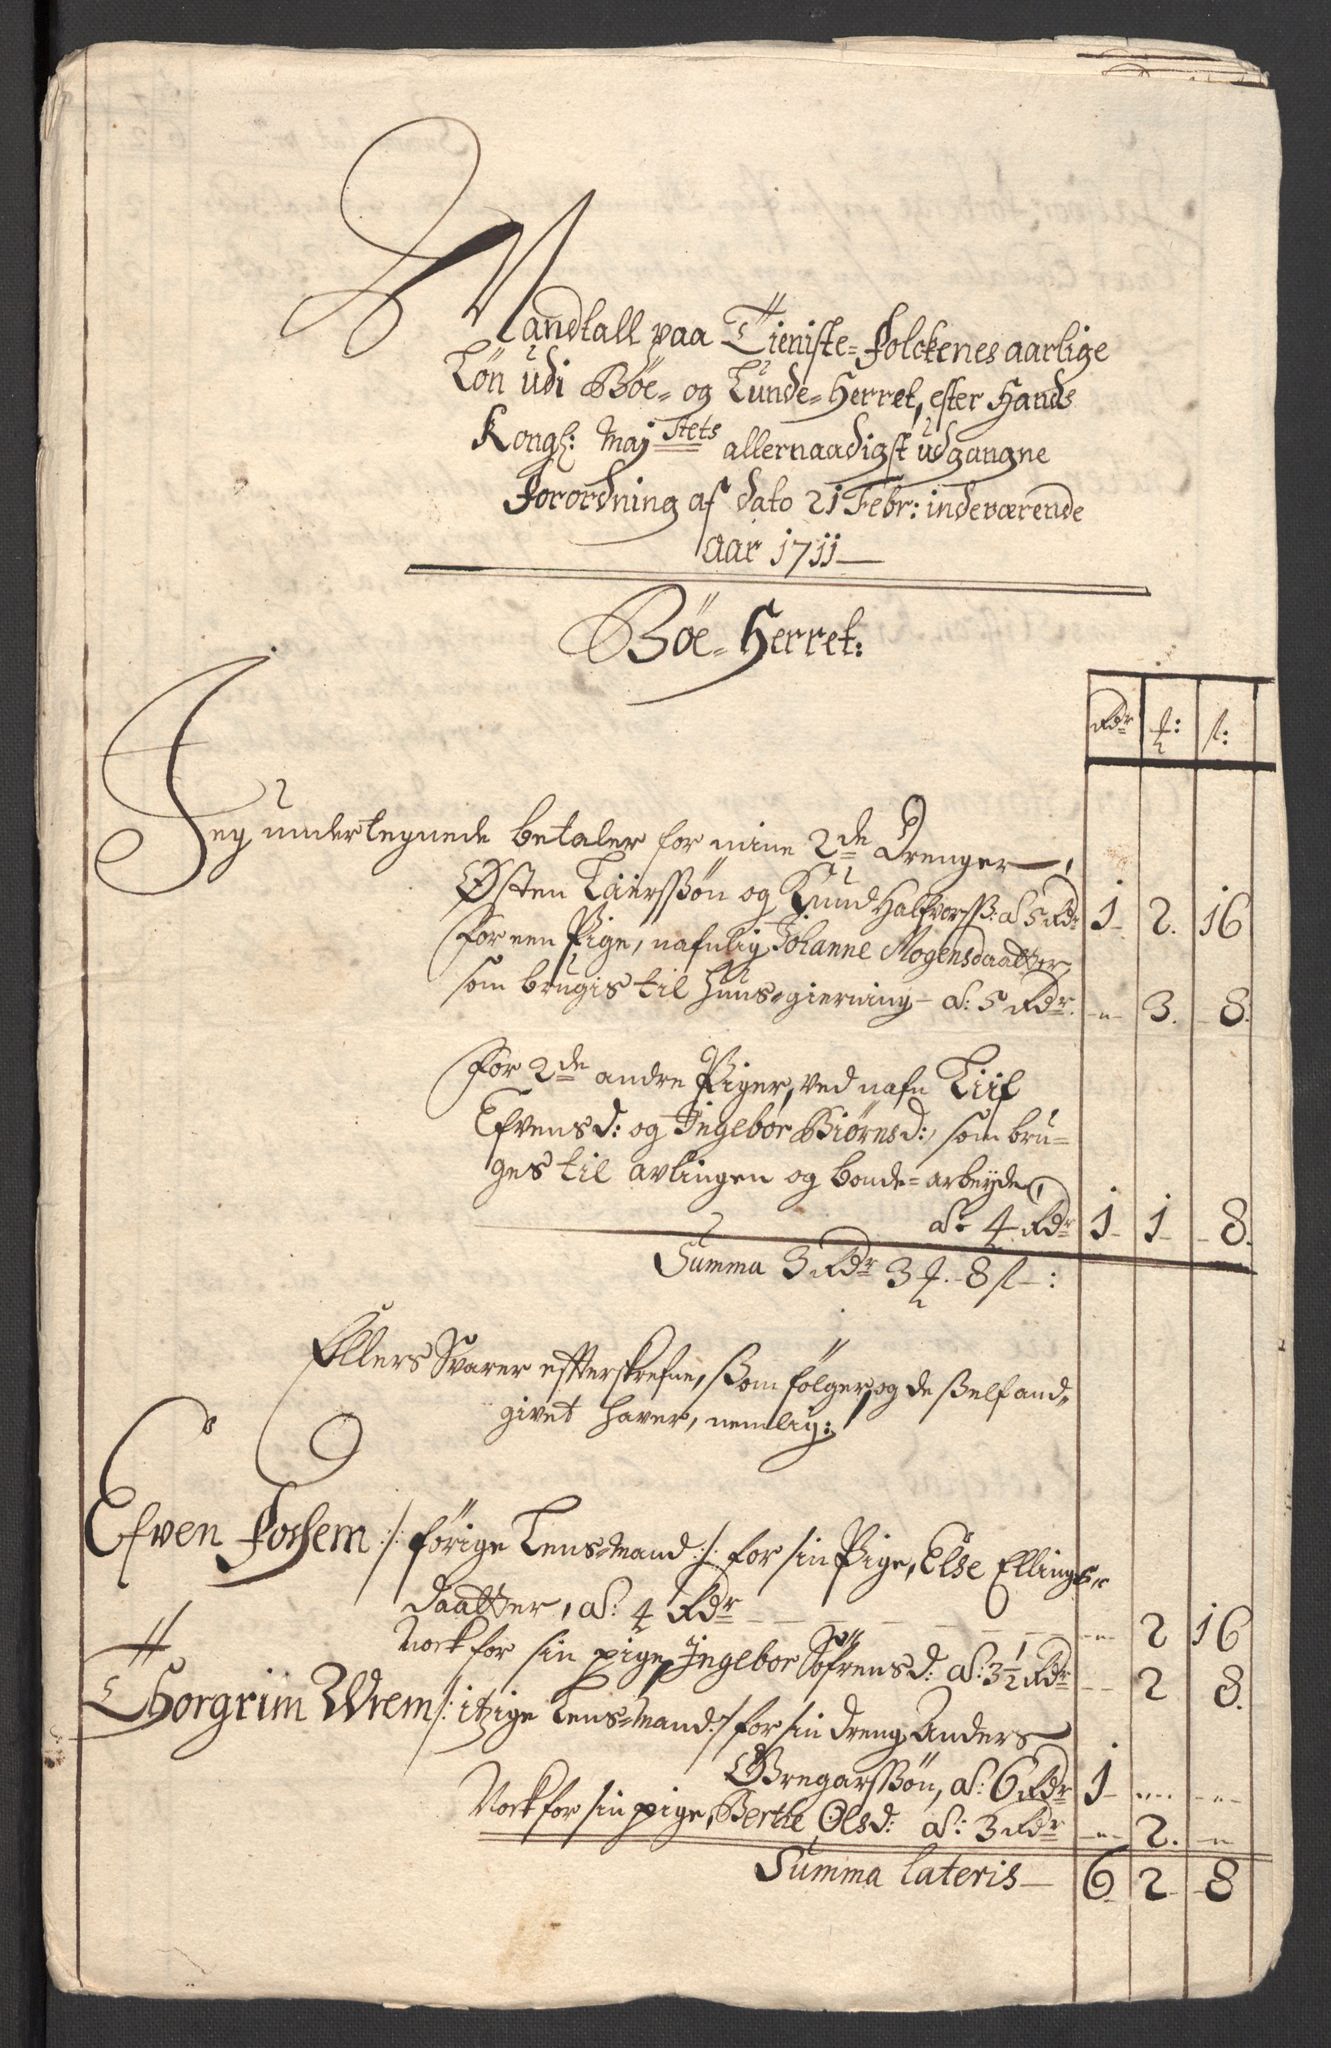 Mandtall paa Tieniste-Folckenes aarlige
Løn udi Bøe- og Lunde-Herret, efter Hands
Kongl: Maj stets allernaadigst udgangne
Forordning af dato 21 Febr: indeværende
aar 1711
Bøe-Herret:
Rdr ț: s:
Jeg undertegnede betaler for mine 2de Drenger,
Østen Taierssøn og Knud Halfvorss: a 5 Rdr 1 2. 16
For een Pige, nafnlig Johanne Mogensdaatter
som brugis til Huus-gierning a: 5 Rdr - 3. 8.
For 2de andre Piger, ved nafn Liif
Efvensd: og Ingebor Biørnsd: som bru-
ges til avlingen og bonde-arbeyde,
a: 4 Rdr 1 1 8.
Summa 3 Rdr 3 ț. 8 s:
Ellers Svarer efterskrefne, ßom følger, og de ßelf and-
givet hafver, nemlig:
Efven Foshem /: forige Lens-Mand :/ for sin Pige, Else Ellings-
daatter, a: 4 Rdr - 2 16
Nock for sin pige, Ingebor Søfrensd: a: 3½ Rdr - 2 8.
Thorgrim Wrem /: itzige Lens-Mand :/ for sin dreng Anders
Gregarssøn, a: 6 Rdr 1 - -
Nock for sin pige, Berthe Olsd: a: 3 Rdr - 2. -
Summa Lateris 6 2 8